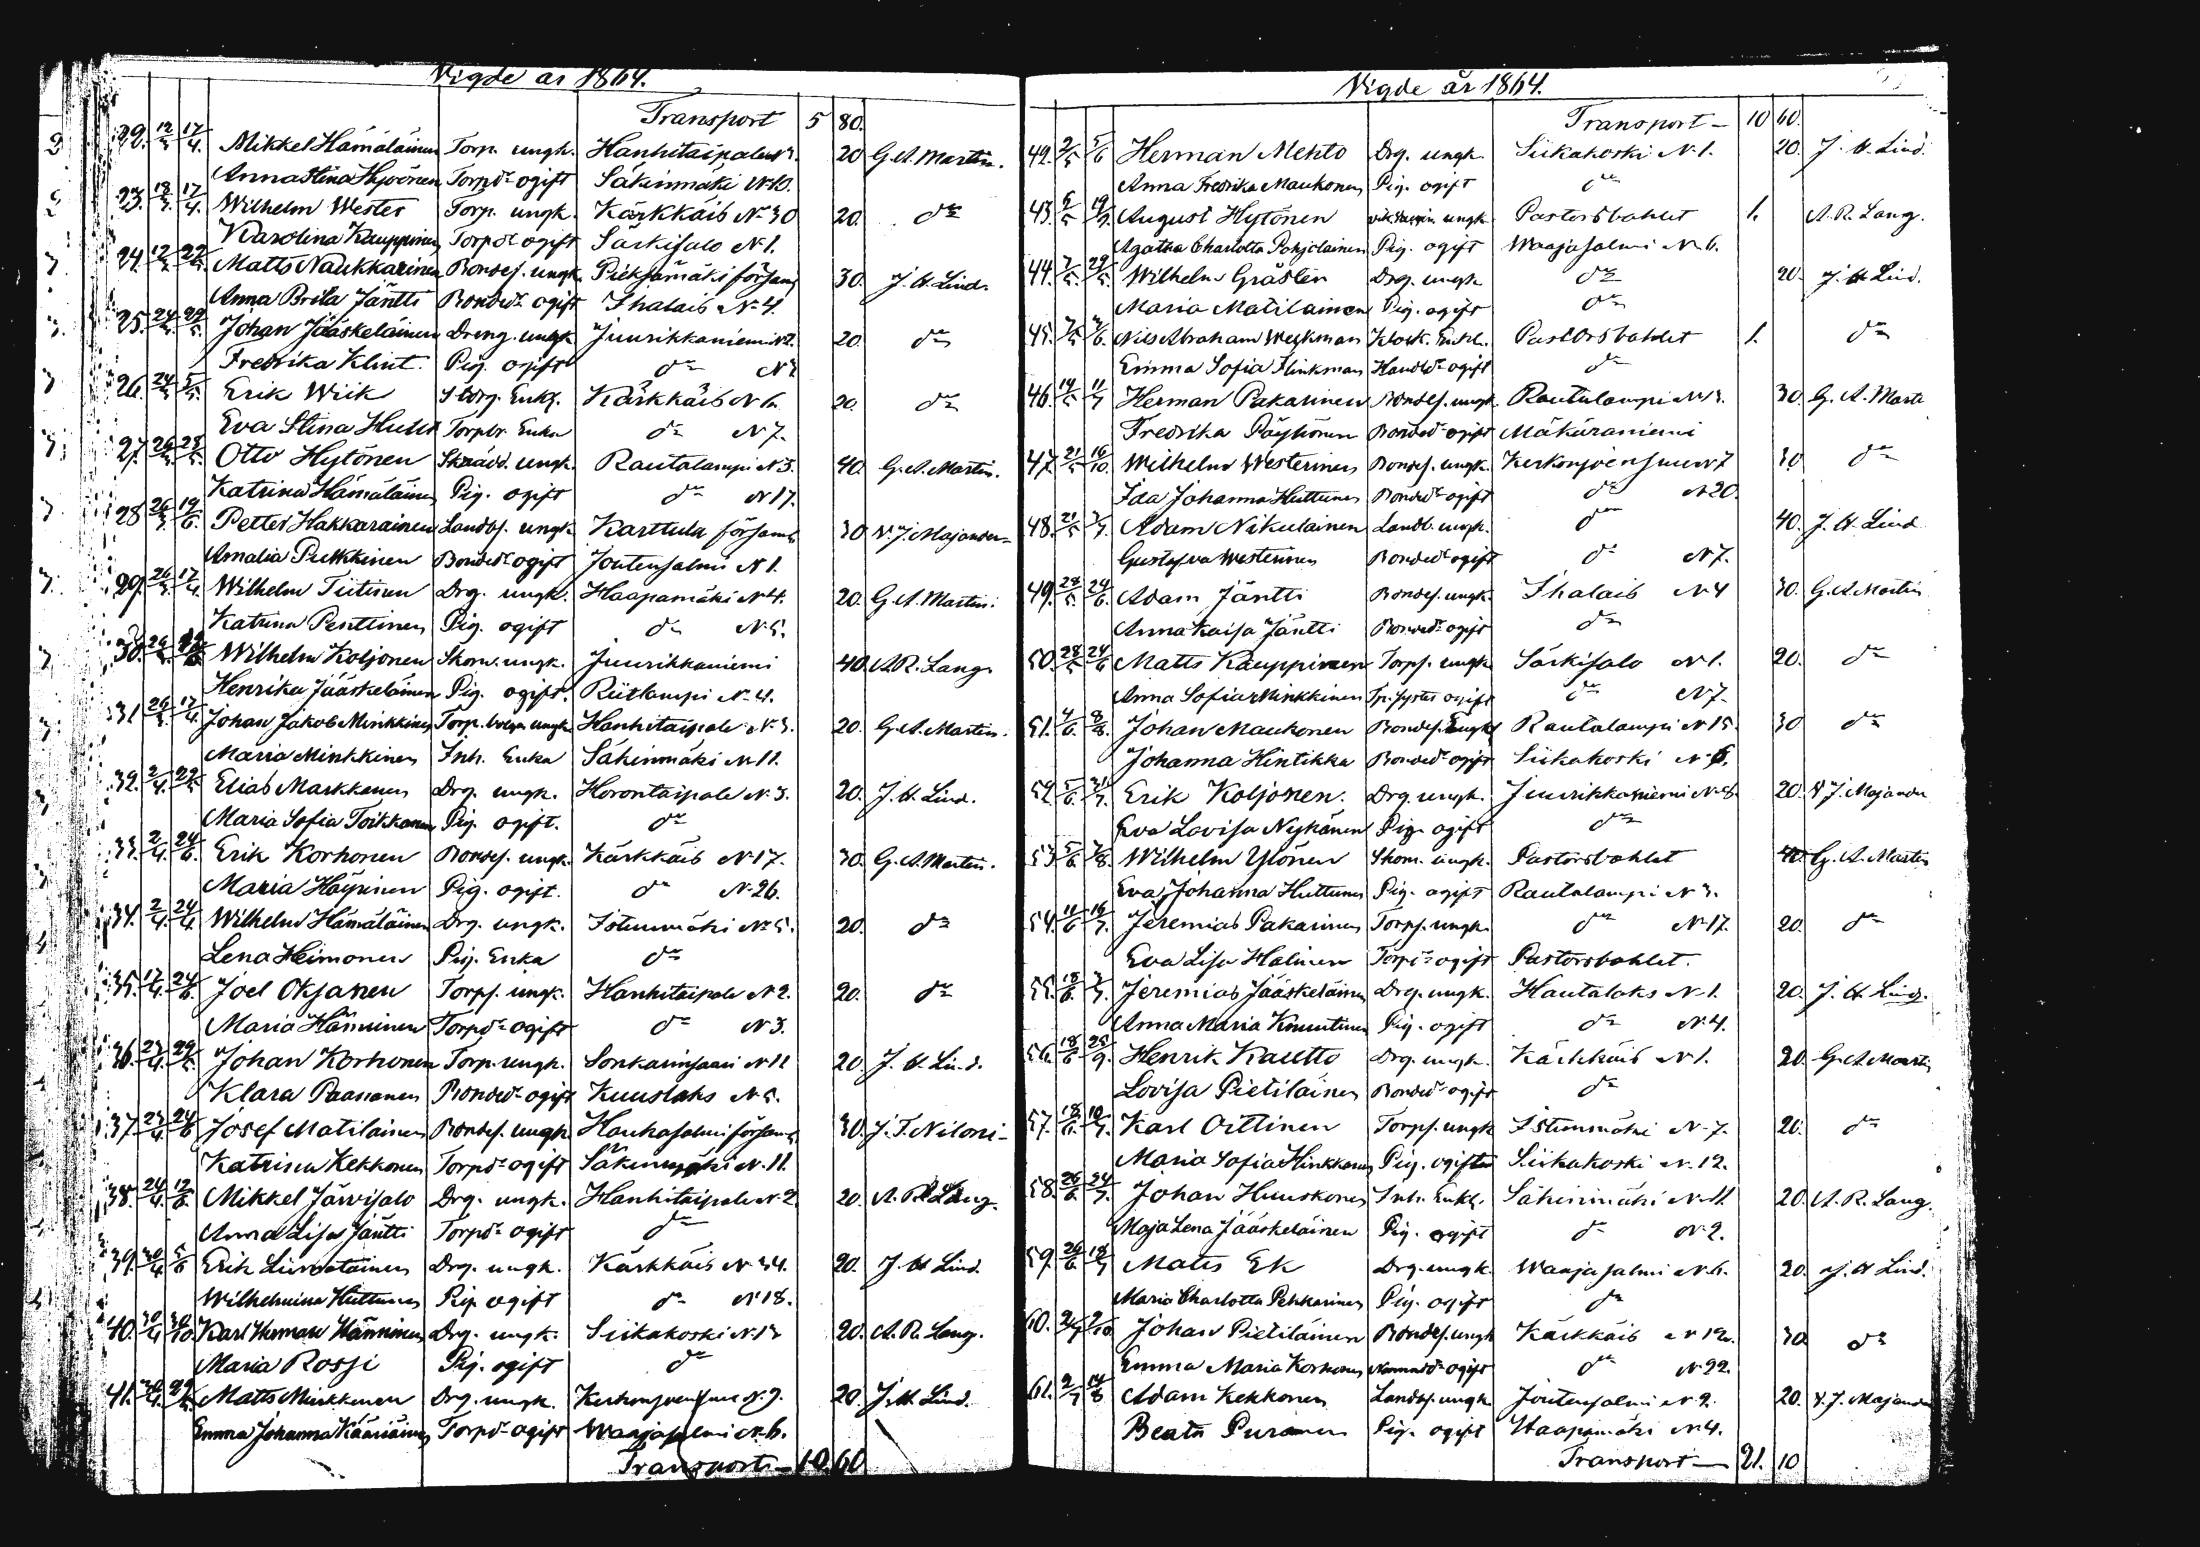 Vigde år 1864.
Transport 5 80.
22. 12/3 17/4. Mikkel Hämäläinen Torp. ungk. Hanhitaipale N 3. 20 G. A. Martin.
Anna Stina Hyvönen Torpd:r ogift Säkinmäki N 10.
23. 18/3. 17/4. Wilhelm Wester Torp. ungk. Kärkkäis N 30 20. d:o
Karolina Kauppinen Torpd:r ogift Särkisalo N 1.
24. 12/3 22/5. Matts Naukkarinen Bondes. ungk. Pieksämäki förs. 30. J. H. Lind.
Anna Brita Jäntti Boned:r ogift Ihalais N 4.
25. 24/3 22/5. Johan Jääskeläinen Dreng. ungk. Juurikkaniemi N 2. 20. d:o
Fredrika Klint. Pig. ogift d:o N
26. 24/3 5/5 Erik Wiik Enkl. Kärkkäis N 6. 20. d:o
Eva Stina Torpr. Enka d:o N 7.
27. 26/3 28/5. Otto Hytönen Skrädd. ungk. Rautalampi N 3. 40. G. A. Martin.
Katrina Hämäläinen Pig. ogift d:o N 17.
28 26/3 19/6. Petter Hakkarainen Landbs. ungk. Karttula förs. 30 N. J. Majander
Amalia Pulkkinen Boned:r ogift Joutensalmi N 1.
29. 26/3 17/4. Wilhelm Tiitinen Drg. ungk. Haapamäki N 4. 20. G. A. Martin.
Katrina Penttinen Pig. ogift d:o N 5.
30. 26/3. Wilhelm Koljonen Skom. ungk. Juurikkaniemi 40. A. R. Lang.
Henrika Jääskeläinen Pig. ogift. Riitlampi N 4.
31 26/3 17/4. Johan Jakob Minkkinen Torp. ungk. Hanhitaipale N 3. 20. G. A. Martin.
Maria Minkkinen Inh. Enka Säkinmäki N 11.
32. 2/4. 22/5 Elias Markkanen Drg. ungk. Horontaipale N 3. 20. J. H. Lind.
Maria Sofia Toikkanen Pig. ogift. d:o
33. 2/4. 24/6. Erik Korhonen Bondes. ungk. Kärkkäis N 17. 30. G. A. Martin.
Maria Häyrinen Pig. ogift. d:o N 26.
34. 2/4. 24/4. Wilhelm Hämäläinen Drg. ungk. Istunmäki N 5. 20. d:o
Lena Heimonen Pig. Enka d:o
35. 17/4. 24/6. Joel Oksanen Torps. ungk. Hanhitaipale N 2. 20. d:o
Maria Hänninen Torpd:r ogift d:o N 3.
36. 23/4. 29/5 Johan Korhonen Torp. ungk. Sonkarinsaari N 11 20. J. H. Lind.
Klara Paananen Boned:r ogift Kuuslaks N 5.
37. 23/4. 24/6 Josef Matilainen Bondes. ungk. Hankasalmi förs. 30. J. T. Niloni
Katrina Kekkonen Torpd:r ogift Säkinmäki N 11.
38. 24/4 12/6. Mikkel Järvisalo Drg. ungk. Hanhitaipale N 2 20. A. R. Lang.
Anna Lisa Jäntti Torpd:r ogift d:o
39. 30/4 5/6 Erik Liimatainen Drg. ungk. Kärkkäis N 34. 20. J. H. Lind.
Wilhelmina Huttunen Pig. ogift d:o N 18.
40. 30/4 30/10 Karl Herman Hänninen Drg. ungk. Siikakoski N 13 20. A. R. Lang.
Maria Rossi Pig. ogift d:o
41. 30/4. 29/5 Matts Minkkinen Drg. ungk. Kerkonjoensuu N 9. 20. J. H. Lind.
Emma Johanna Kääriäinen Torpd:r ogift Waajasalmi N 6.
Transport 10. 60
Vigde år 1864.
Transport 10 60.
42. 2/5 5/6 Herman Mehto Drg. ungk. Siikakoski N 1. 20. J. H. Lind.
Anna Fredrika Maukonen Pig. ogift d:o
43. 6/5 August Hytönen ungk. Pastorsbohlet 1. A. R. Lang.
Agatha Charlotta Pohjolainen Pig. ogift Waajasalmi N 6.
44. 7/5 29/5. Wilhelm Gråsten Drg. ungk. d:o 20. J. H. Lind.
Maria Matilainen Pig. ogift d:o
45. 7/5 Nils Abraham Weckman Klock. Enkl. Pastorsbohlet 1. d:o
Emma Sofia Flinkman Handld:r ogift d:o
46. 14/5 11/7 Herman Pakarinen Bondes. ungk. Rautalampi N 13. 30. G. A. Marti
Fredrika Pöyhönen Boned:r ogift Mäkäraniemi
47. 21/5 16/10. Wilhelm Westerinen Bondes. ungk. Kerkonjoensuu N 7 30 d:o
Ida Johanna Huttunen Boned:r ogift d:o N 20.
48. 21/5 3/7. Adam Nikulainen Landb. ungk. d:o 40. J. H. Lind
Gustafva Westerinen Boned:r ogift d:o N 7.
49. 28/5. 24/6. Adam Jäntti Bondes. ungk. Ihalais N 4 30. G. A. Martin
Anna Kaisa Jäntti Boned:r ogift d:o
50. 28/5 24/6 Matts Kauppinen Torps. ungk. Särkisalo N 1. 20. d:o
Anna Sofia Minkkinen Tp. syster ogift d:o N 7.
51. 4/6. Johan Maukonen Bondes. ungk. Rautalampi N 15. 30 d:o
Johanna Hintikka Boned:r ogift Siikakoski N 6.
52. 5/6. 31/7. Erik Koljonen. Drg. ungk. Juurikkaniemi N 8. 20. N. J. Majander
Eva Lovisa Nykänen Pig. ogift d:o
53. 5/6 7/8. Wilhelm Ylönen Skom. ungk. Pastorsbohlet 40. G. A. Martin
Eva Johanna Huttunen Pig. ogift Rautalampi N 3.
54. 11/6 16/7. Jeremias Pakarinen Torps. ungk. d:o N 17. 20. d:o
Eva Lisa Halinen Torpd:r ogift Pastorsbohlet.
55. 18/6. 3/7. Jeremias Jääskeläinen Drg. ungk. Hautalaks N 1. 20. J. H. Lind.
Anna Maria Knuutinen Pig. ogift d:o N 4.
56. 18/6 25/9. Henrik Kautto Drg. ungk. Kärkkäis N 1. 20. G. A. Martin
Lovisa Pietiläinen Boned:r ogift d:o
57. 18/6. 10/7. Karl Oittinen Torps. ungk Istunmäki N 7. 20. d:o
Maria Sofia Hinkkanen Pig. ogift Siikakoski N 12.
58. 26/6. 24/7. Johan Huuskonen Inh. Enkl. Säkinmäki N 11. 20. A. R. Lang.
Maja Lena Jääskeläinen Pig. ogift d:o N 2.
59. 26/6 Matts Ek Drg. ungk. Waajasalmi N 6. 20. J. H. Lind.
Maria Charlotta Pekkarinen Pig. ogift d:o
60. 2/7 2/10 Johan Pietiläinen Bondes. ungk Kärkkäis N 12. 30. d:o
Emma Maria Korhonen ogift d:o N 22.
61. 2/7 14/8 Adam Kekkonen Landbs. ungk. Joutensalmi N 2. 20. N. J. Majander
Beata Puranen Pig. ogift Haapamäki N 4.
Transport 21. 10